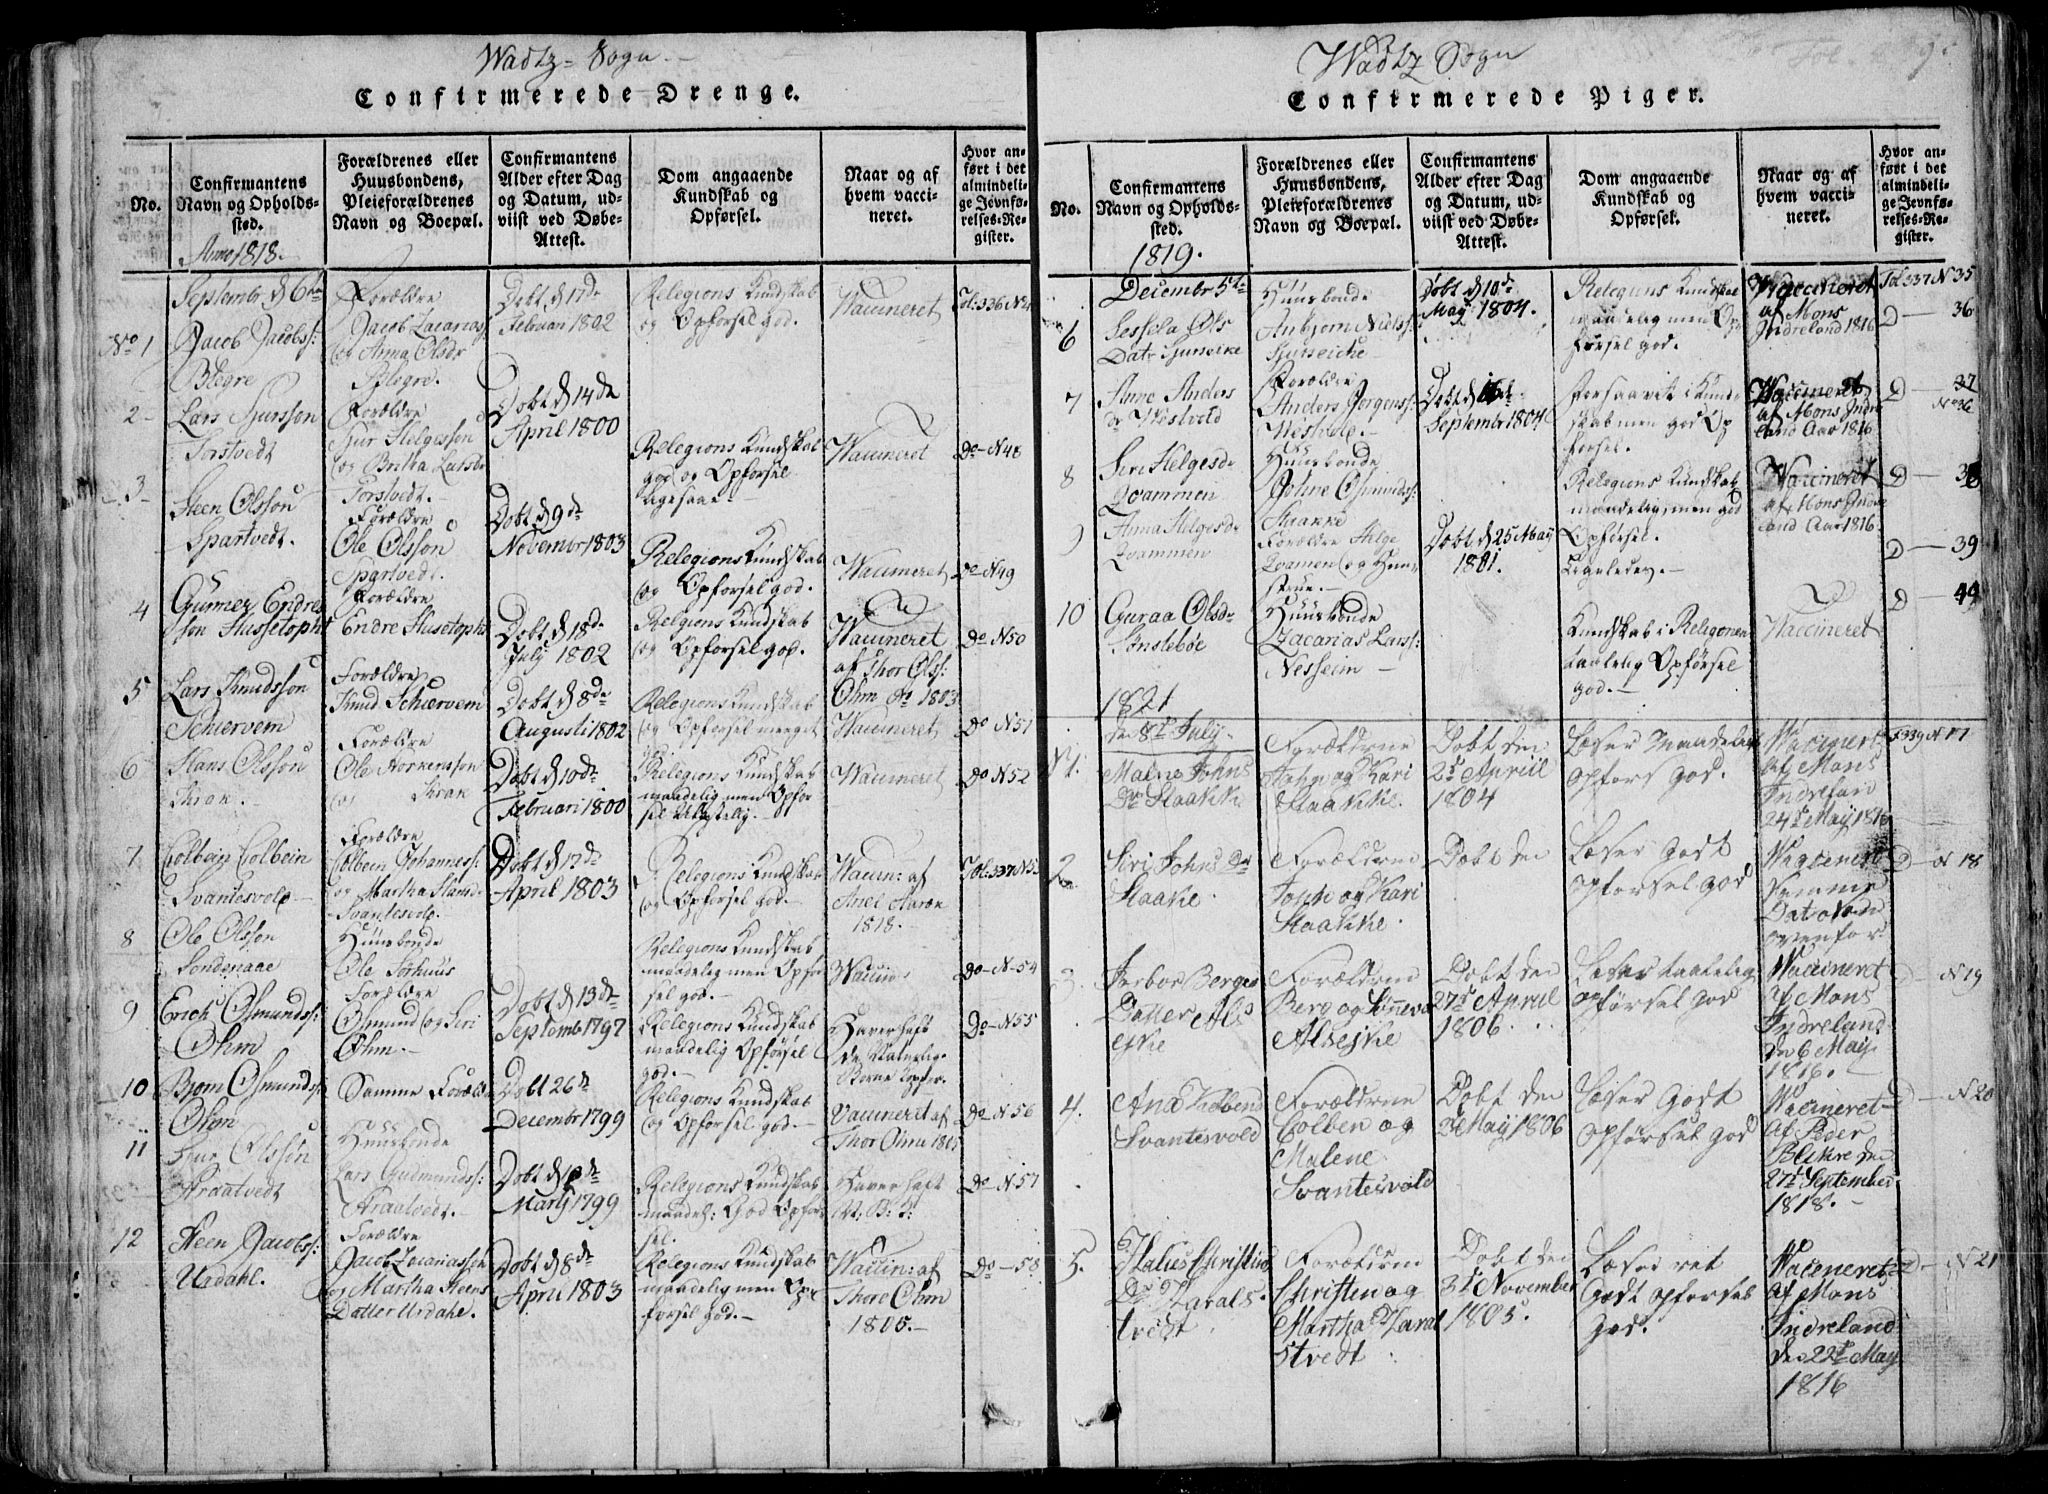 Wadtz Sogn
Confirmerede Drenge.
No.
Confirmantens
Navn og Opholds-
sted.
Anno 1818.
Forældrenes eller
Huusbondens,
Pleieforældrenes
Navn og Boepæl.
Confirmantens
Alder efter Dag
og Datum, ud-
viist ved Døbe-
Attest.
Dom angaaende
Kundskab og
Opførsel.
Naar og af
hvem vacci-
neret.
Hvor an-
ført i det
almindeli-
ge Jevnfø-
relses-Re-
gister.
Septembr d 6te
No 1
Jacob Jacobs:
Blegre
Forældre
Jacob Zacarias
og Anna Olsdr
Blegre.
Døbt d 17de
Februari 1802
Relegions Kundskab
og Opførsel god.
Vaccineret
Fol: 336 N 47
2
Lars Sjursson
Torstvedt
Forældre
Siur Helgesson
og Britha Larsdr
Torstvedt.
Døbt d 14de
April 1800
Relegions Kundskab
god og Opførsel
ligesaa
Vaccineret
Do N 48
3
Steen Olsson
Spartvedt.
Forældre
Ole Olsson
Spartvedt.
Døbt d 9de
Novembr 1803
Relegions Kundskab
og Opførsel god.
Vaccineret
Do N 49
4
Endre
son Hussetopht
Forældre
Endre Husetopht
Døbt d 18de
July 1802
Relegions Kundskab
og Opførsel god.
Vaccineret
af Thor Ols:
Ohm Ao 1803
Do N 50
5
Lars Knudsson
Schiervem
Forældre
Knud Schiervem
Døbt d 8de
Augusti 1802
Relegions Kundskab
og Opførsel meeget
god
Vaccineret
Do N 51
6
Hans Olsson
Forældre
Ole
og
Døbt d 10de
Februari 1800
Relegions Kundskab
maadelig men Opfør
sel
Vaccineret
Do N 52
7
Colbein Colbein
Svantesvold
Forældre
Colbein Johannes:
og Martha
Svantesvold.
Døbt d 17de
April 1803
Relegions Kundskab
og Opførsel god.
Vaccin: af
1818.
Fol: 337 N 53
8
Ole Olsson
Søndenaae
Huusbonde
Ole Sørhuus
Relegions Kundskab
maadelig men Opfør
sel god.
Vaccin:
Do N 54
9
Erich Osmunds:
Ohm
Forældre
Osmund og Siri
Ohm.
Døbt d 13de
Septemb 1797
Relegions Kundskab
maadelig Opførsel
god.
Haver haft
de Naturlig
Børne Kopper.
Do N 55
10
Osmunds:
Ohm
Samme Forældre
Døbt 26de
Decembr 1799
Relegions Kundskab
og Opførsel god.
Vaccineret af
Thor Ohm
Do N 56
11
Siur Olsson
Huusbonde
Lars Gudmunds:
Døbt d
Marty 1799
Relegions Kundskab
maadel: God Opfør
sel.
Haver haft
N: B: K:
Do N 57
12
Steen Jacobs:
Urdahl.
Forældre
Jacob Zacariassøn
og Martha Steens
Datter Urdahl.
Døbt d 8de
April 1803
Relegions Kundskab
maadelig men Op
førsel god.
Vaccin: af
Thore Ohm
1805.
Do 58
Wadtz Sogn
Confirmerede Piger.
No.
Confirmantens
Navn og Opholds-
sted.
1819.
Forældrenes eller
Huusbondens,
Pleieforældrenes
Navn og Boepæl.
Confirmantens
Alder efter Dag
og Datum, ud-
viist ved Døbe-
Attest.
Dom angaaende
Kundskab og
Opførsel.
Naar og af
hvem vacci-
neret.
Hvor an-
ført i det
almindeli-
ge Jevnfø-
relses-Re-
gister.
Decembr 5te
6
Sessela Ols
Datr
Huusbonde
Niels:
Døbt d 10de
May 1804.
Relegions Kundskab
maadelig men Op
førsel god.
Vaccineret
af Mons
Indreland 1816
Fol 337 N 35
D 36
7
Anne Anders
dr Westvold
Forældre
Anders Jørgens:
Westvold.
Septembr 1804
skab men god Op
førsel.
Vaccineret
af Mons Indre
land Aar 1816
D 37
8
Siri Helgesdr
Qvammen
Huusbonde
Johne Osmunds:
Relegions Kundskab
maadelig, men god
Opførsel.
Vaccineret
af Mons Indre
land Aar 1816.
D 38
9
Anna Helgesdr
Qvammen
Forældre Helge
Qvamen og Huu-
strue.
Døbt d 25 May
1801.
Ligeledes.
D 39
10
Guraa Olsdr
Huusbonde
Zacarias Lars:
Nesheim
Kundskab i Religionen
taalelig Opførsel
god.
Vaccineret
D 44
1821
den 8de July.
N 1.
Malene Johns
Dr Staakke
Forældrene
John og Kari
Staakke.
Døbt den
2de Apriil
1804
Læser maadelig
opførs god.
Vaccineret
af Mons
24de May 1816
F 339 N 17
2
Siri Johns Dr
Staake.
Forældrene
John og Kari
Staakke.
Døbt den
Læser Godt
opførsel god
Vaccineret
Samme
Dato som
ovenfor.
D N 18
3.
Berges
Datter Als
eike
Forældrene
Berg og
Alseike
Døbt den
27de Apriil
1806.
Læser taalelig
opførsel god
Vaccineret
af Mons
Indreland
den 6 May
1816.
D N 19
4.
Ana Kolbens
Svantesvold
Forældrene
Colben og
Malene
Svantesvold
Døbt den
May 1806
Læser Godt
opførsel god
Vaccineret
af Peder
den
27de September
1818.
D N 20
5.
Christens
Dr Harals
tvedt
Forældrene
Christen og
Martha Haral
stvedt
Døbt den
3de November
1805.
Læser ret
Godt opførsel
god.
Vaccineret
af Mons
Indreland
den 22de May
1816
D N 21